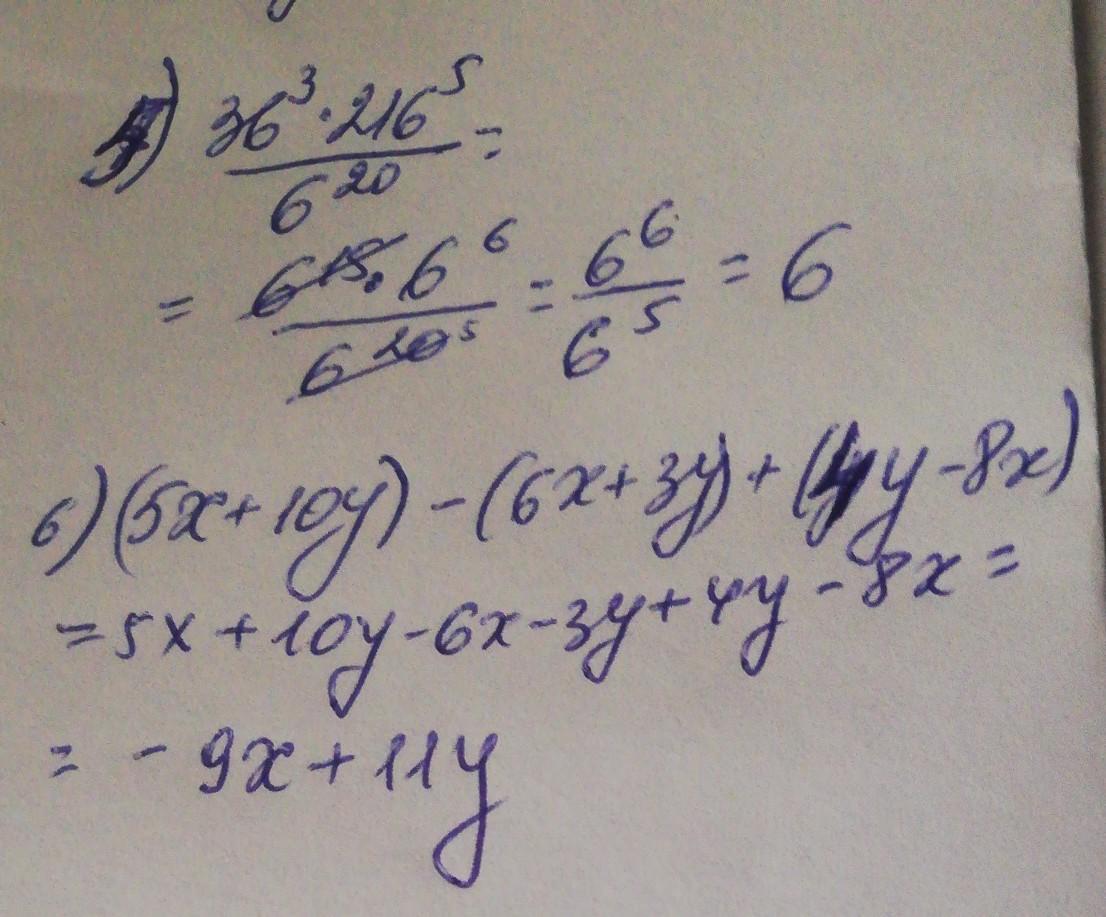 5) 36³·216⁵/6²⁰ =
= 6¹⁵·6⁶/6²⁰ ⁵ = 6⁶/6⁵ = 6
6) (5x+10y)-(6x+3y)+(4y-8x)
=5x+10y-6x-3y+4y-8x=
= -9x+11y